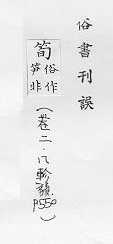 俗書刊誤
筍俗作
笋非
(卷二.八軫韻P550)